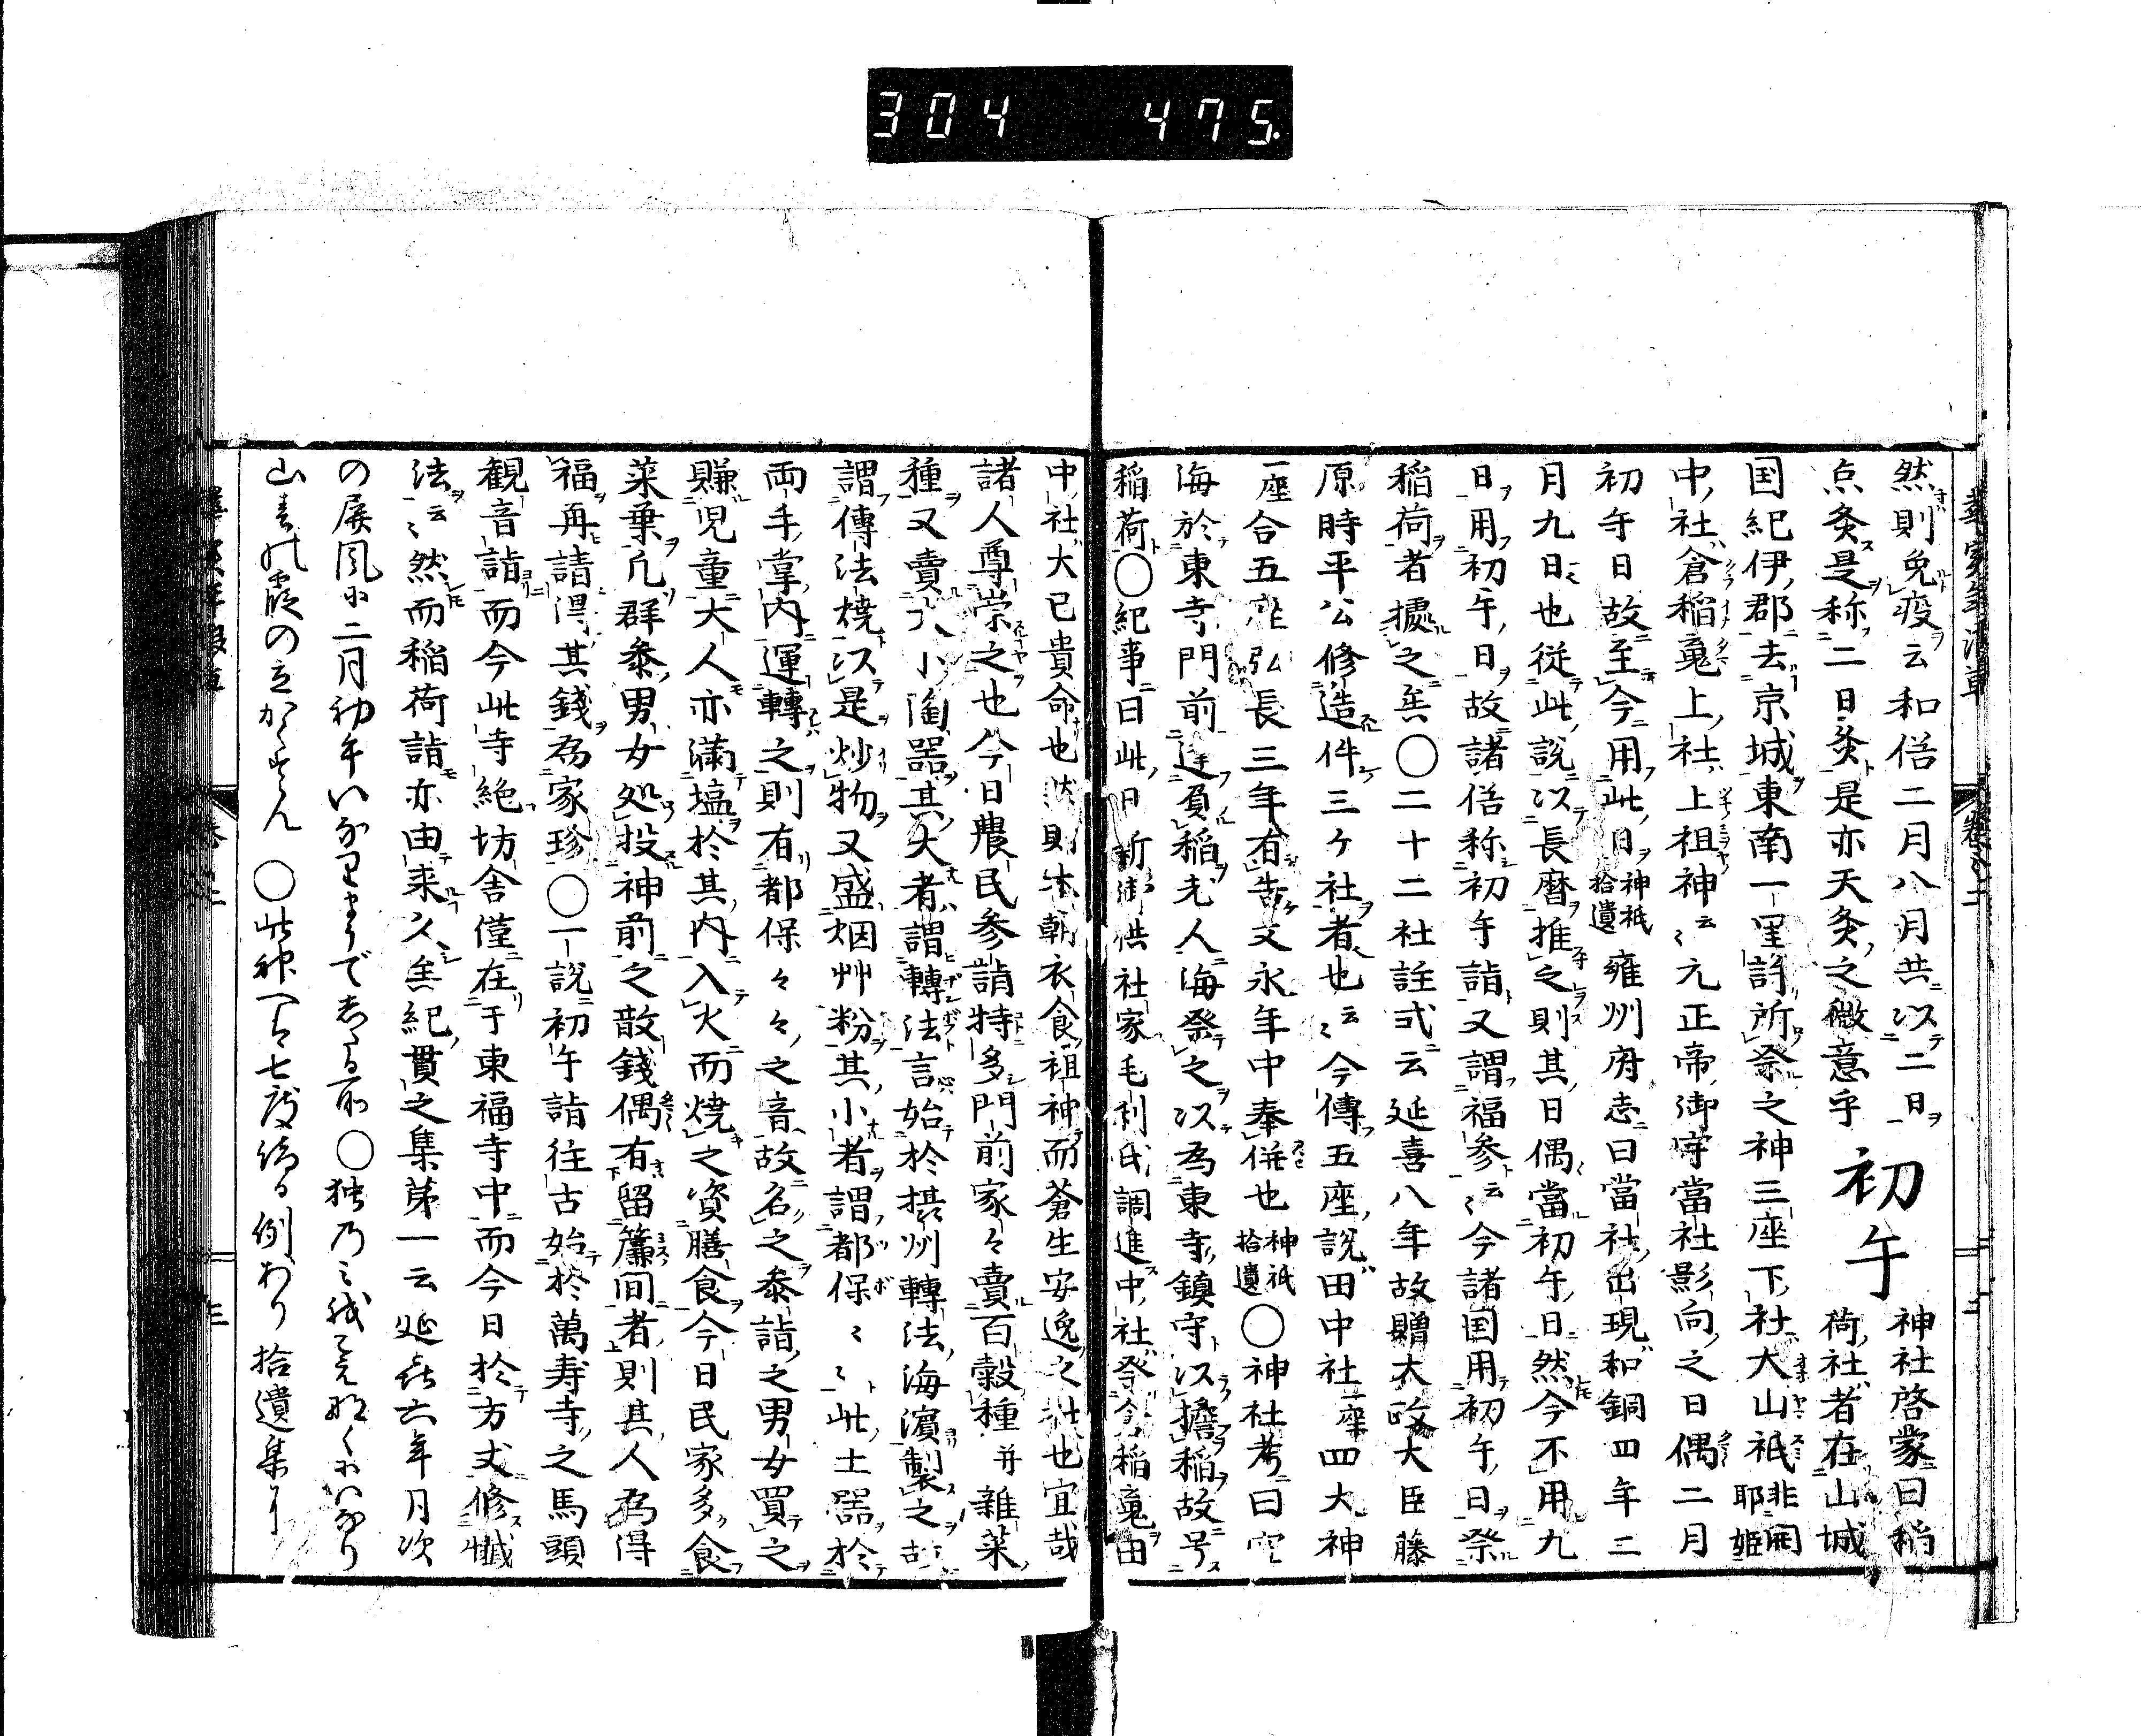 304 475
然則免疫云和俗二月八月共以二日
点灸是称二日灸是亦天灸之微意乎
初午
神社啓蒙曰稲
荷社者在山城
国紀伊郡去京城東南一里許所祭之神三座下社大山祇
中社倉稲䰠上社上祖神云〻元正帝御宇當社影向之日偶二月
初午日故至今用此日神祇拾遺雍州府志曰當社出現和銅四年二
月九日也従此説以長暦推之則其日偶當初午日然今不用九
日用初午日故諸俗称初午詣又謂福参云〻今諸国用初午日祭
稲荷者據之矣〇二十二社註式云延喜八年故贈太政大臣藤
原時平公修造件三ケ社者也云〻今傳五座説田中社一座四大神
一座合五座弘長三年有告文永年中奉併也神祇拾遺〇神社考曰空
海於東寺門前逢負稲老人海祭之以為東寺鎮守以擔稲故号
稲荷〇紀事曰此日新御供社家毛利氏調進中社祭倉稲䰠由
中社大已貴命也然則本朝衣食祖神而蒼生安逸之社也宜哉
諸人尊崇之也今日農民参詣特多門前家〻賣百穀種并雜菜
種又賣大小陶器其大者謂轉法言始於摂州轉法海濱製之故
謂傳法焼以是炒物又盛烟艸粉其小者謂都保〻〻此土器於
両手掌内運轉之則有都保々々之音故名之参詣之男女買之
賺児童大人亦満塩於其内入火而焼之資膳食今日民家多食
菜葉凡群参男女処投神前之散錢偶有留簾間者則其人為得
福再請得其錢為家珍〇一説初午詣往古始於萬寿寺之馬頭
観音詣而今此寺絶坊舎僅在于東福寺中而今日於方丈修懺
法云〻然而稲荷詣亦由来久矣紀貫之集苐一云延㐂六年月次
の屏風に二月初午いなりまうで
〇此神へは七度詣る例あり拾遺集に